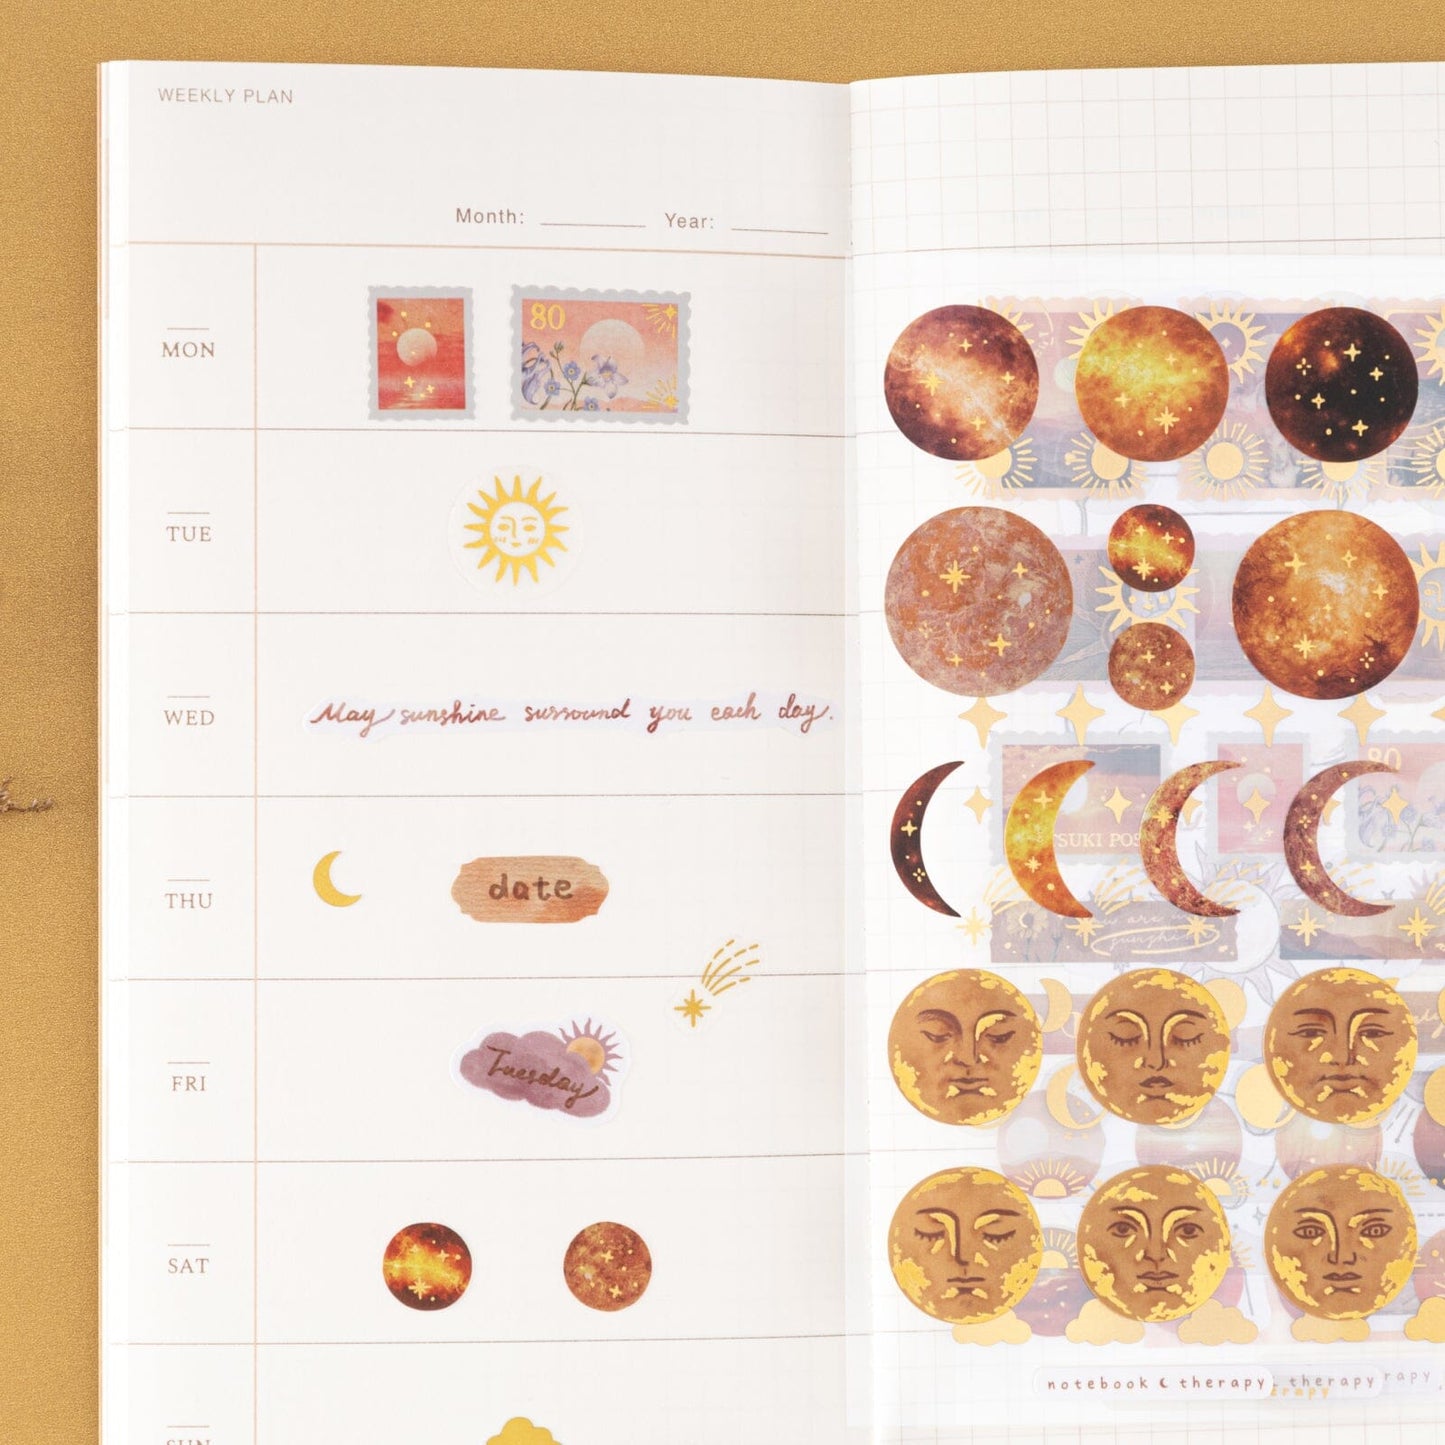 WEEKLY PLAN
Month: Year:
MON
80
TUE
WED
May sunshine surround you each day.
THU
date
FRI
Tuesday
SAT
SUN
80
SUKI POS
sunshine
notebook therapy therapy rapy
erapy